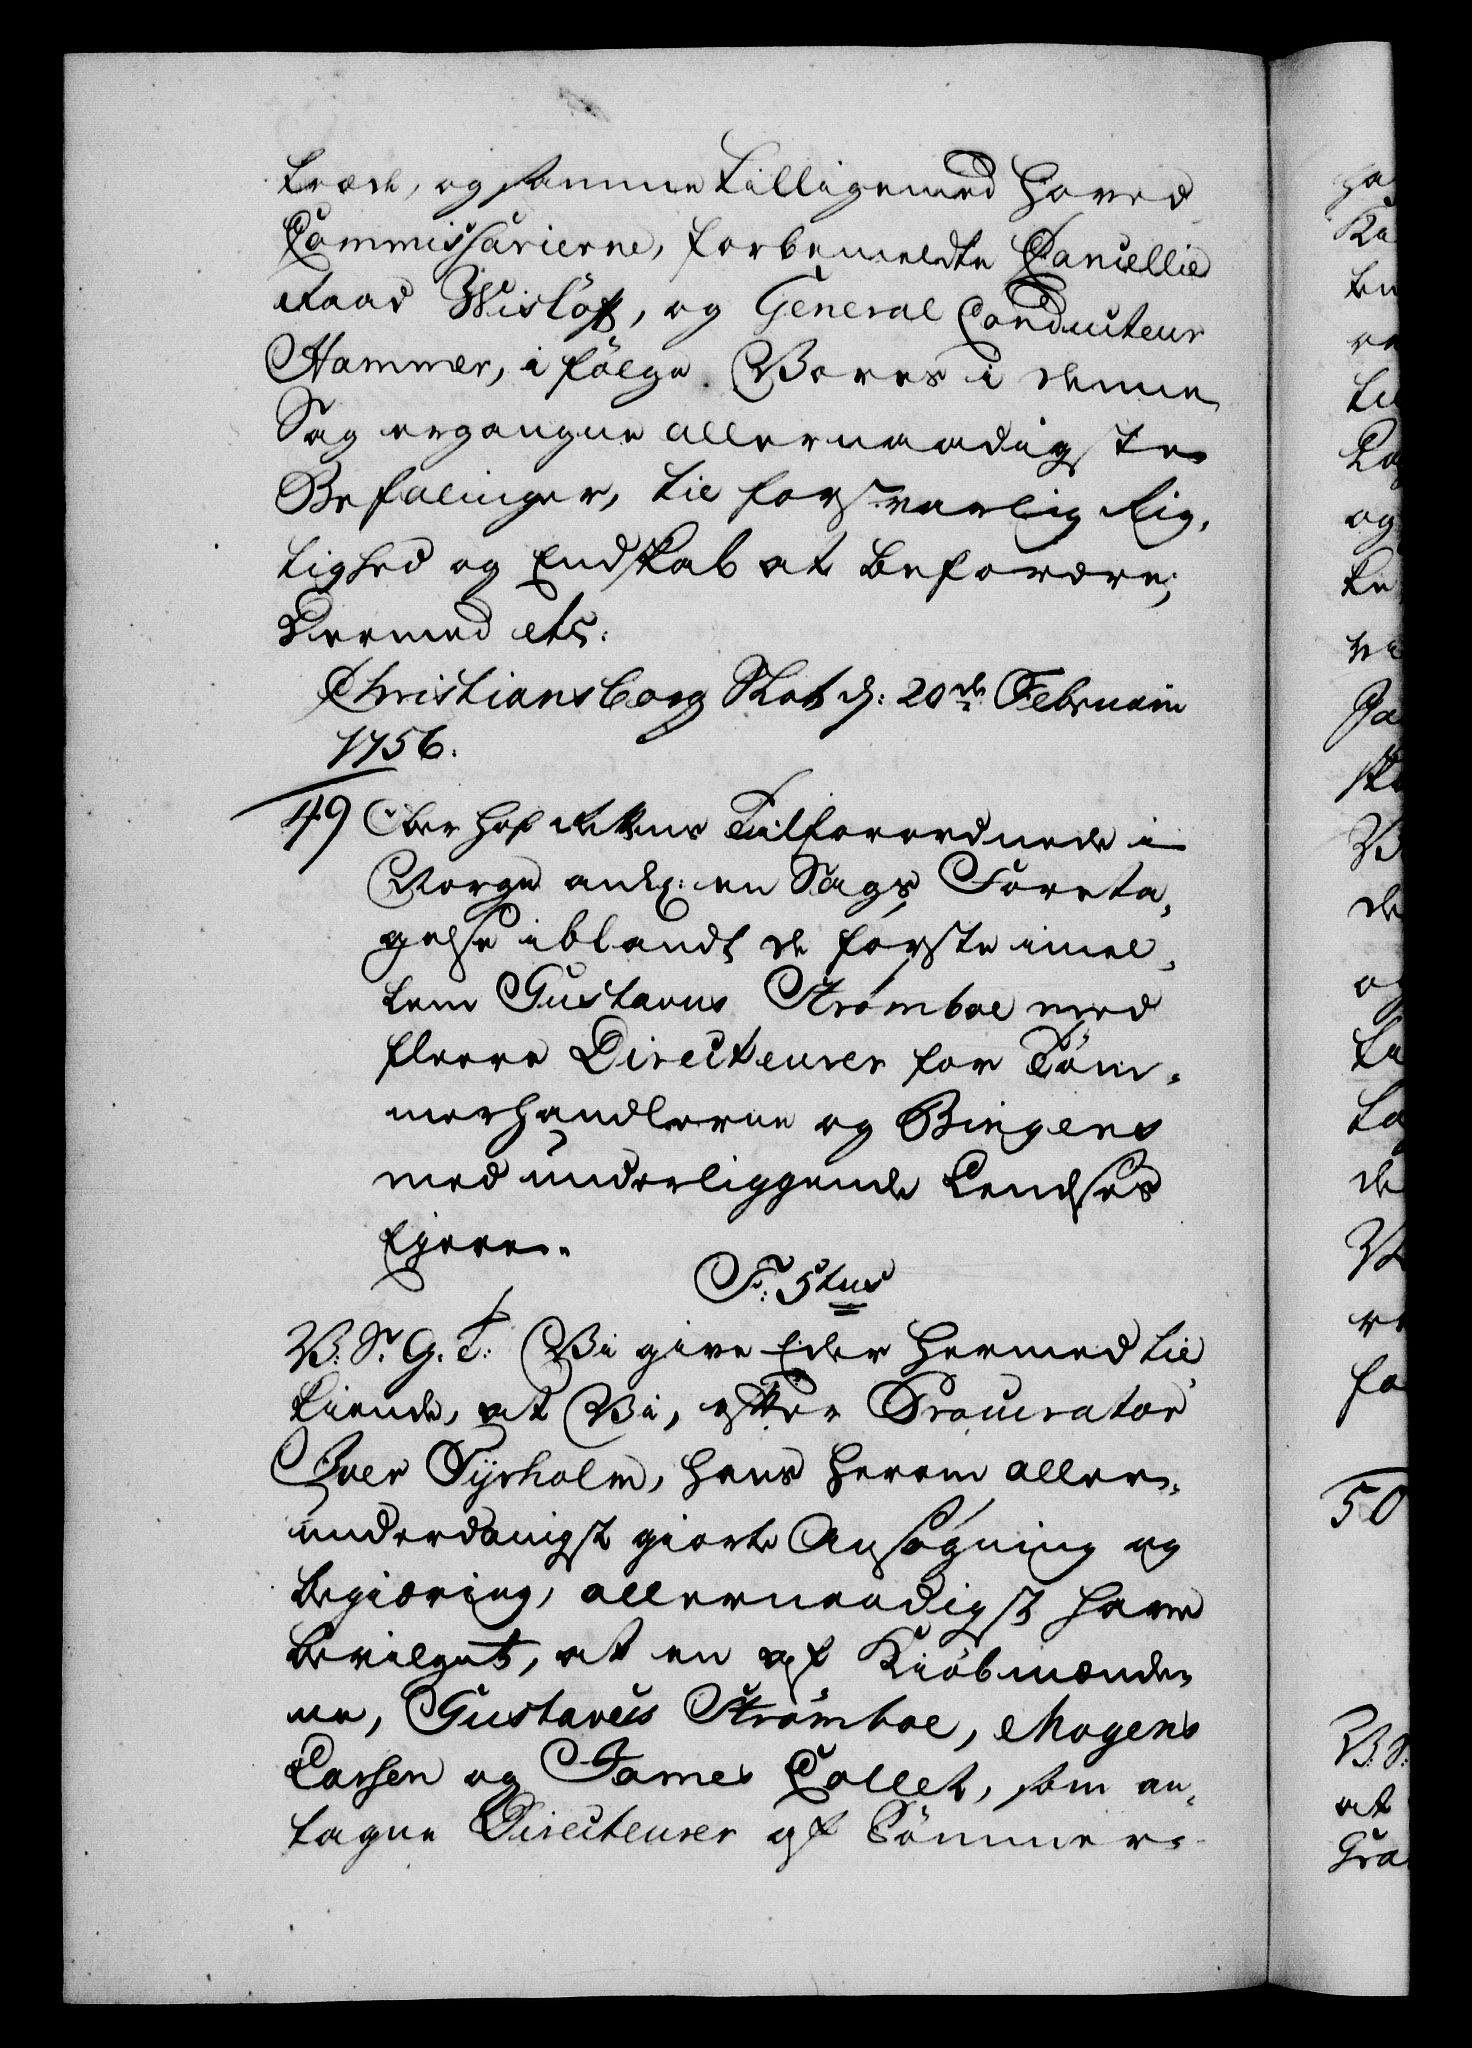 træde, og samme tilligemed Hoved
Commissarierne, forbemeldte Cancellie
Raad Wisløff, og General Conducteur
Hammer, i følge Vores i denne
Sag ergangne allernaadigste
Befalinger, til forsvarlig Rig,
tighed og Endskab at befordre;
Dermed etc:
Christiansborg Slot d: 20de Februarii
1756.
49 Ober Hof Rettens Tilforordnede i
Norge anl: en Sags Foreta,
gelse iblandt de første imel,
lem Gustavus Strømboe med
fleere Directeurer for Tøm,
merhandlerne og Bingens
med underliggende Lendses
Ejere.
F: 5tus
V: S. G. T: Vi give Eder hermed til
kiende, at Vi, efter Procurator
Iver Tyrholm, hans herom aller,
underdanigst giorte Ansøgning og
begiæring, allernaadigst have
bevilget, at en af Kiøbmænde,
ne, Gustavus Strømboe, Mogens
Larsen og James Collet, som an,
tagne Directeurer af Tømmer,
50